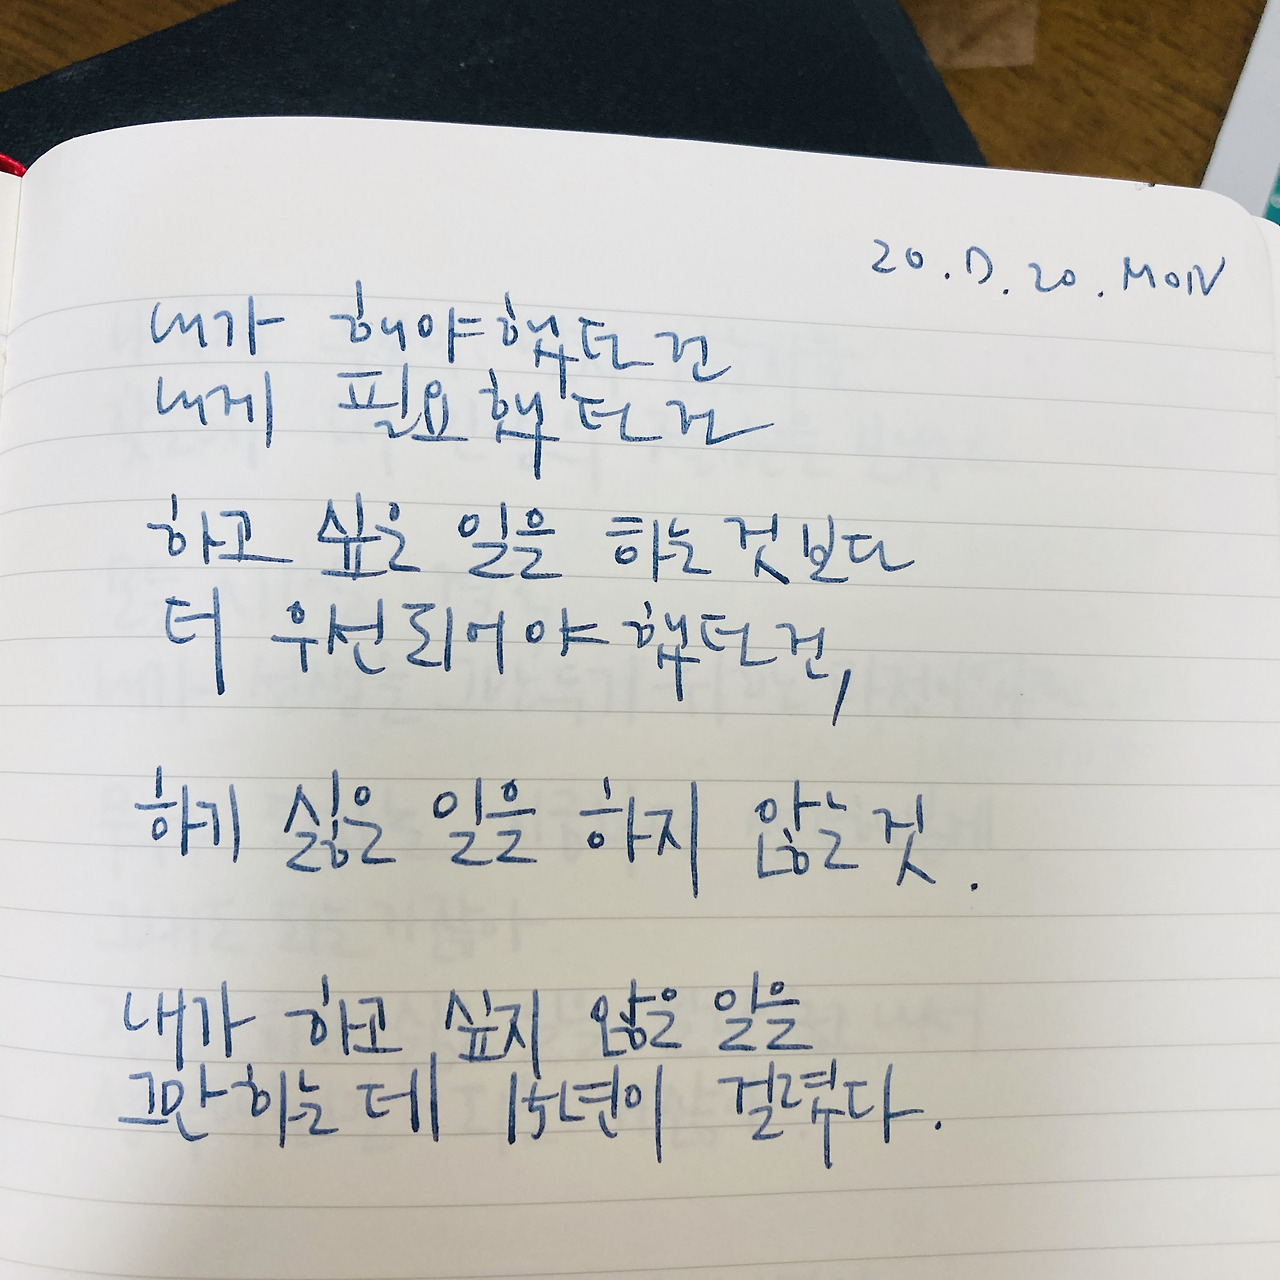 20.D.20.MON
내가 해야했던 건
내게 필요했던 건
하고 싶은 일을 하는 것보다
더 우선되어야 했던 건,
하기 싫은 일을 하지 않는 것.
내가 하고 싶지 않은 일을
그만하는 데 15년이 걸렸다.